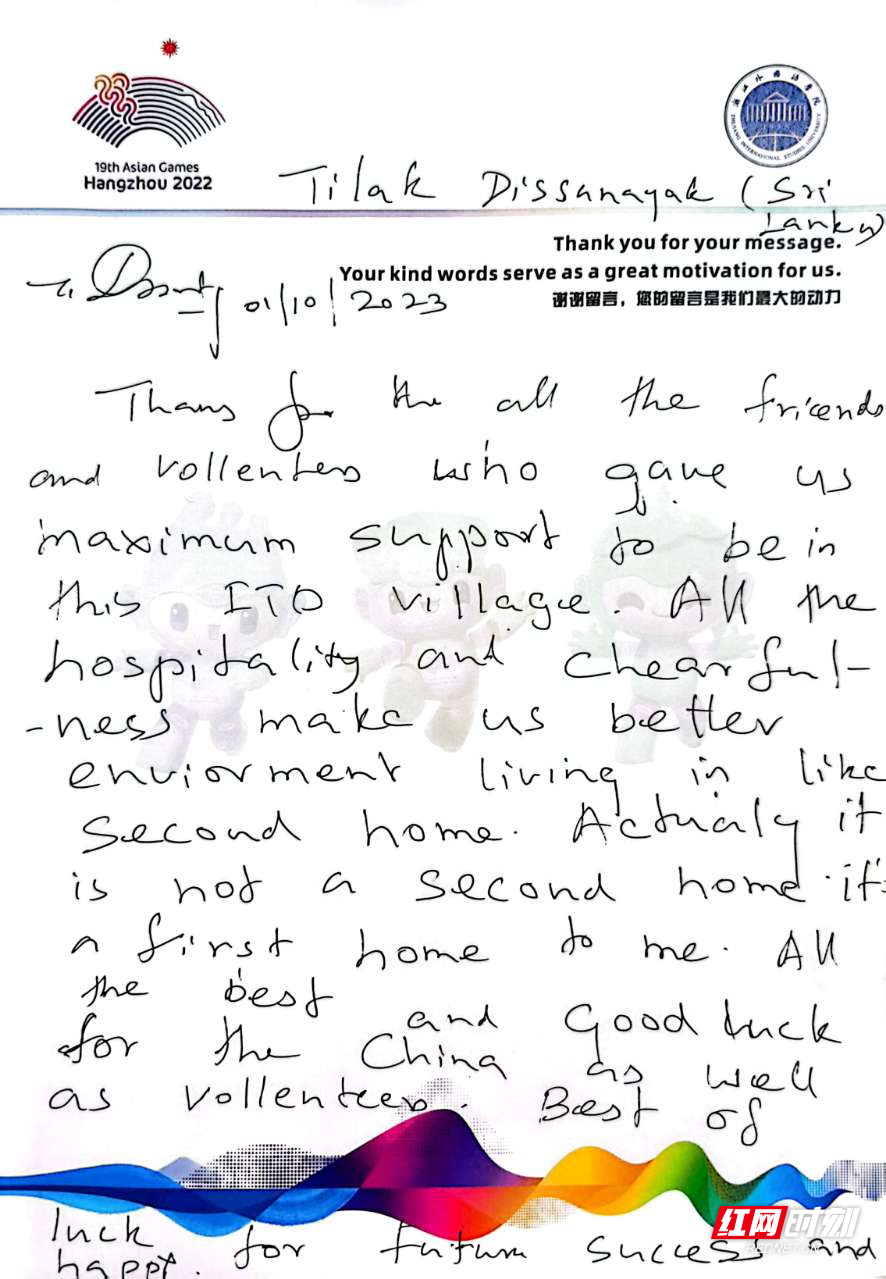 19th Asian Games
Hangzhou 2022
浙江外国语学院
ZHEJIANG INTERNATIONAL STUDIES UNIVERSITY
Tilak Dissanayak (Sri
Lanka)
Thank you for your message.
Your kind words serve as a great motivation for us.
谢谢留言，您的留言是我们最大的动力
01/10/2023
Thans for the all the friends
and vollenters who gave us
maximum support to be in
this ITO village. All the
hospitality and chearful-
-ness make us better
enviorment living in like
second home. Actualy it
is not a second home. it's
a first home to me. All
the best
and Good luck
for the China as well
as vollenteers. Best of
luck for future success and
happy.
红网时刻
REDNET.CN